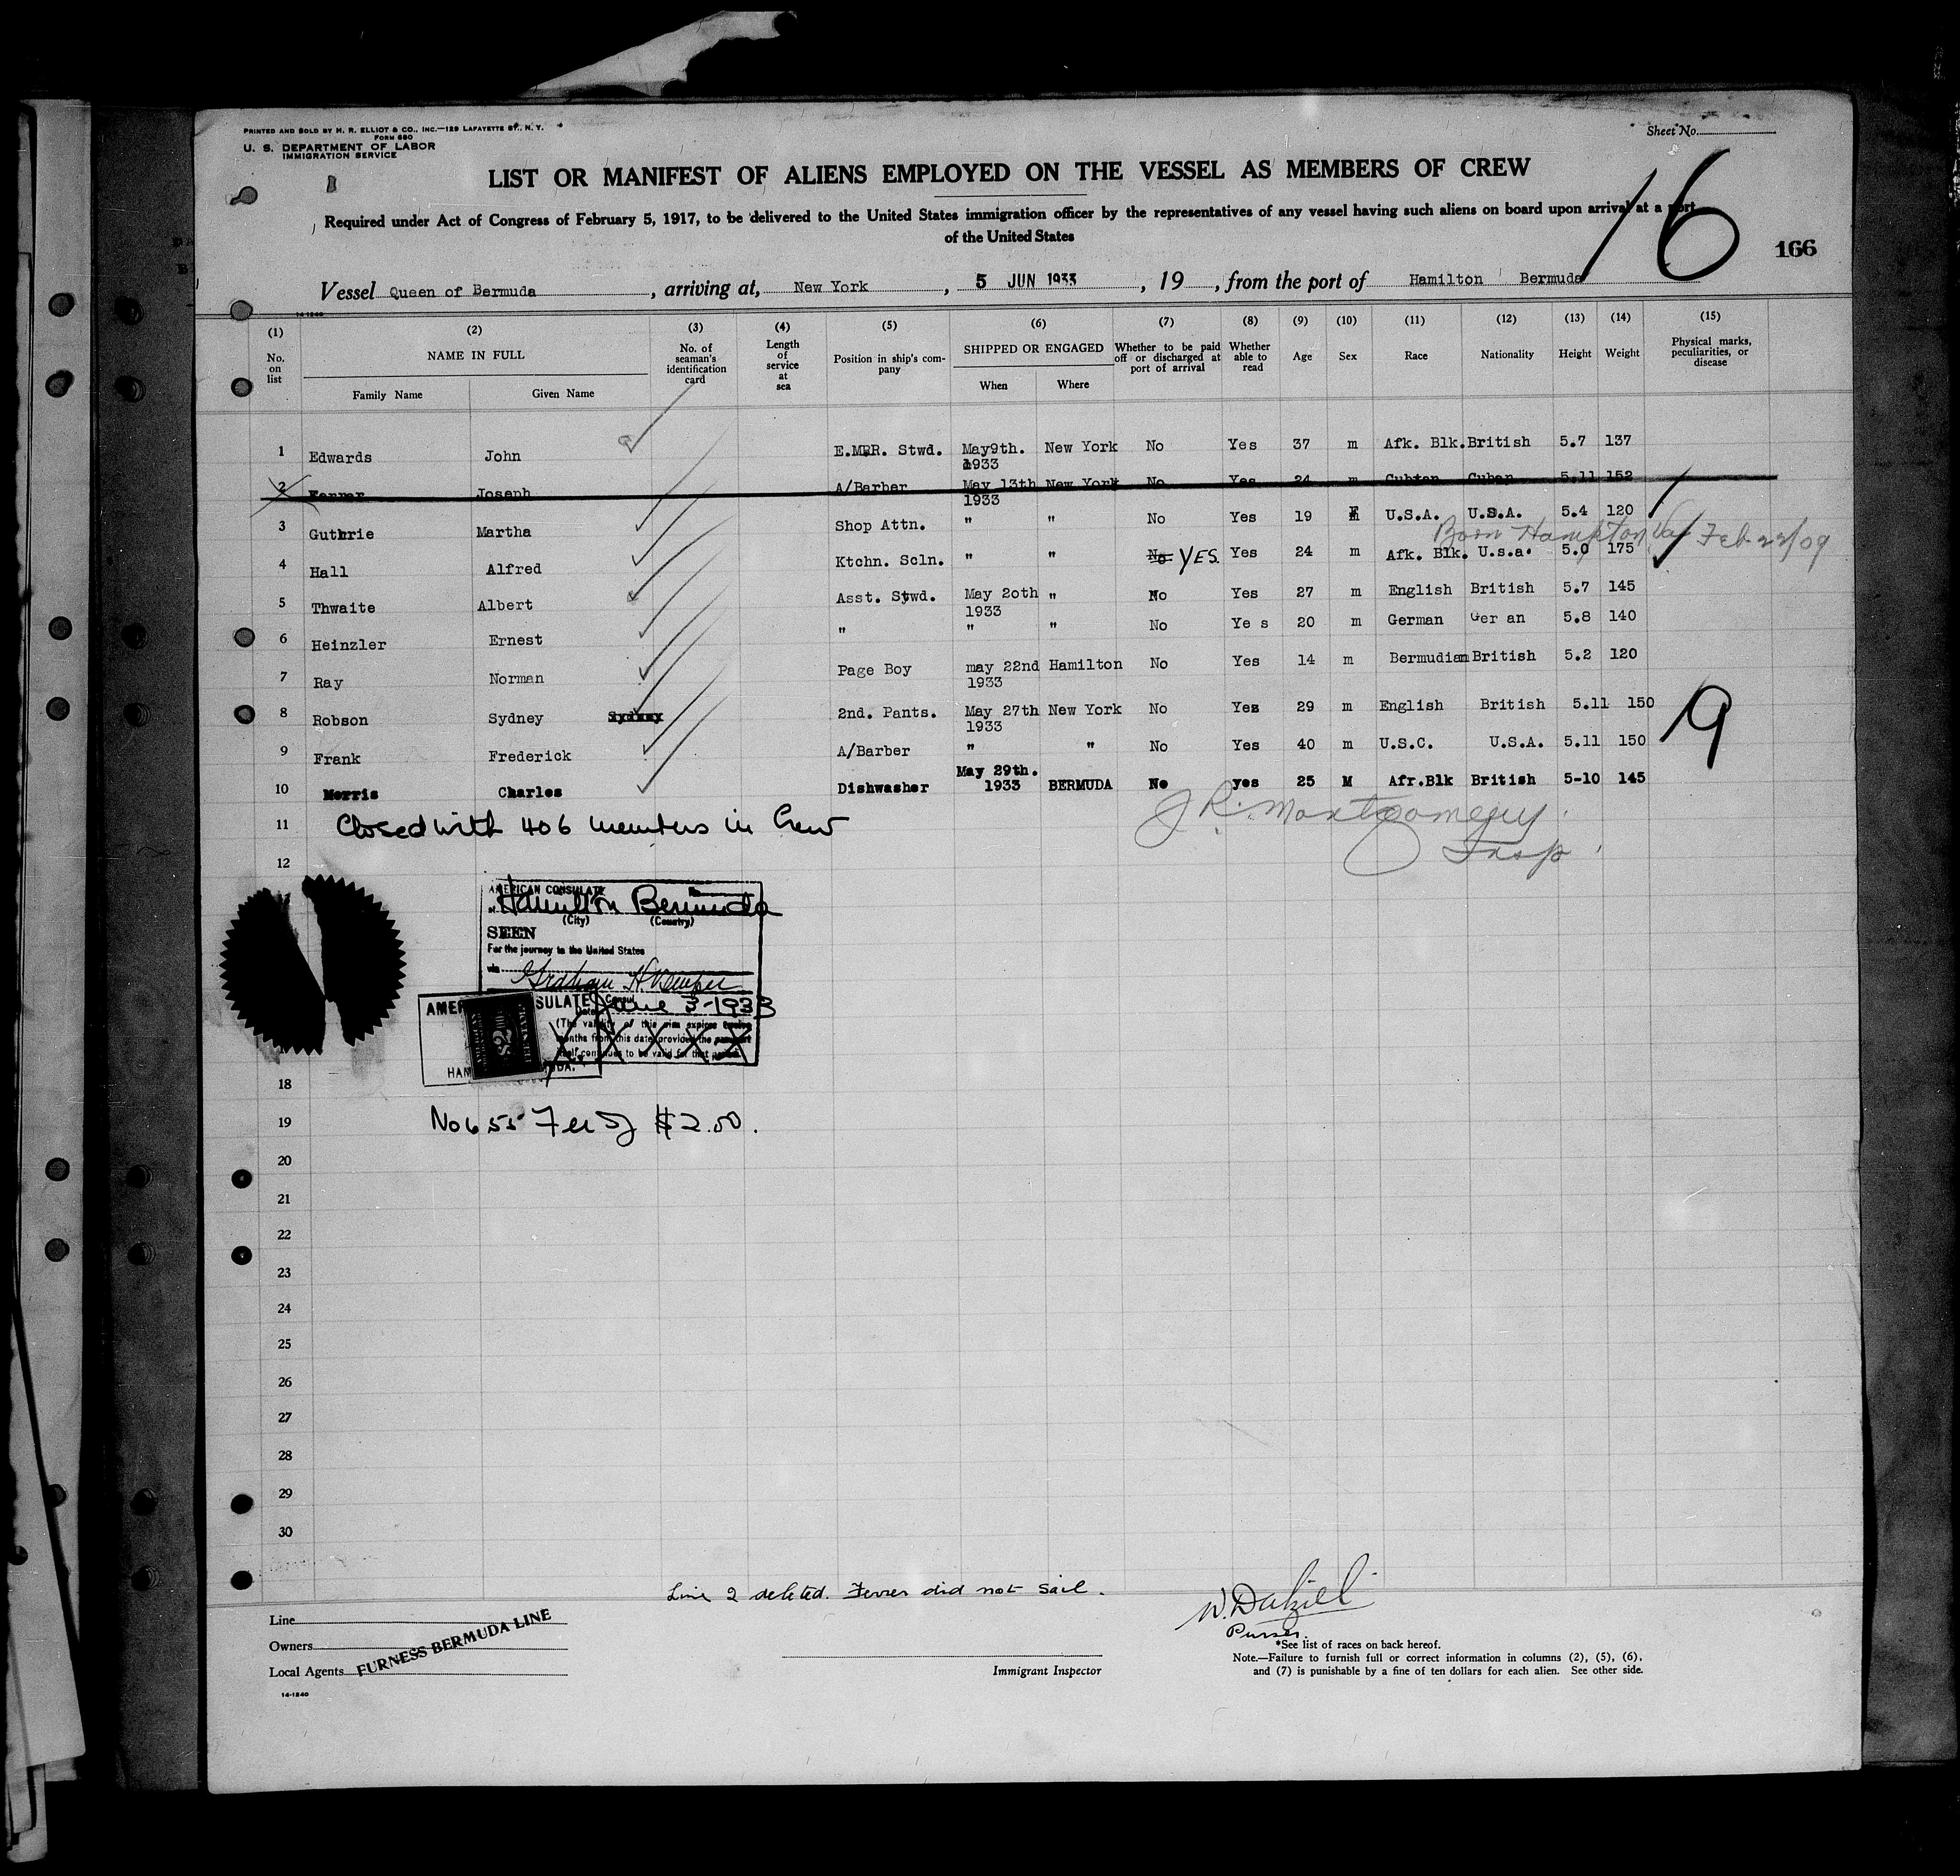 PRINTED AND SOLD BY H. R. ELLIOT & CO., INC.—129 LAFAYETTE ST., N. Y.
FORM 680
U. S. DEPARTMENT OF LABOR
IMMIGRATION SERVICE
Sheet No.
LIST OR MANIFEST OF ALIENS EMPLOYED ON THE VESSEL AS MEMBERS OF CREW
Required under Act of Congress of February 5, 1917, to be delivered to the United States immigration officer by the representatives of any vessel having such aliens on board upon arrival at a port
of the United States
16
166
Vessel Queen of Bermuda, arriving at, New York, 5 JUN 1933, 19, from the port of Hamilton Bermuda
14-1240
(1) (2) (3) (4) (5) (6) (7) (8) (9) (10) (11) (12) (13) (14) (15)
No. on list NAME IN FULL Family Name Given Name No. of seaman's identification card Length of service at sea Position in ship's company SHIPPED OR ENGAGED When Where Whether to be paid off or discharged at port of arrival Whether able to read Age Sex Race Nationality Height Weight Physical marks, peculiarities, or disease
1 Edwards John E.MRR. Stwd. May9th. 1933 New York No Yes 37 m Afk. Blk. British 5.7 137
2 Joseph A/Barber May 13th 1933 New York No Yes 24 m Cuban 5.11 152
3 Guthrie Martha Shop Attn. " " No Yes 19 F U.S.A. U.S.A. 5.4 120
Born Hampton Va Feb 22/09
4 Hall Alfred Ktchn. Scln. " " No YES. Yes 24 m Afk. Blk. U.s.a. 5.0 175
5 Thwaite Albert Asst. Stwd. May 2oth 1933 " No Yes 27 m English British 5.7 145
6 Heinzler Ernest " " " No Ye s 20 m German Ger an 5.8 140
7 Ray Norman Page Boy may 22nd 1933 Hamilton No Yes 14 m Bermudian British 5.2 120
8 Robson Sydney Sydney 2nd. Pants. May 27th 1933 New York No Yes 29 m English British 5.11 150
9 Frank Frederick A/Barber " " No Yes 40 m U.S.C. U.S.A. 5.11 150
9
10 Morris Charles Dishwasher May 29th. 1933 BERMUDA No yes 25 M Afr.Blk British 5-10 145
11 Closed with 406 members in Crew
J R. Montgomery
Insp.
12
AMERICAN CONSULATE
at Hamilton Bermuda
(City) (Country)
SEEN
For the journey to the United States
via
Graham H. Kemper
Consul
Date June 3-1933
(The validity of this visa expires twelve
months from this date provided the passport
itself continues to be valid for that period
18
19 No 655 Fee $2.00.
20
21
22
23
24
25
26
27
28
29
30
Line 2 deleted. Ferrer did not sail.
W. Dalziel
Purser.
Line
Owners
Local Agents FURNESS BERMUDA LINE
14-1240
Immigrant Inspector
*See list of races on back hereof.
Note.—Failure to furnish full or correct information in columns (2), (5), (6),
and (7) is punishable by a fine of ten dollars for each alien. See other side.